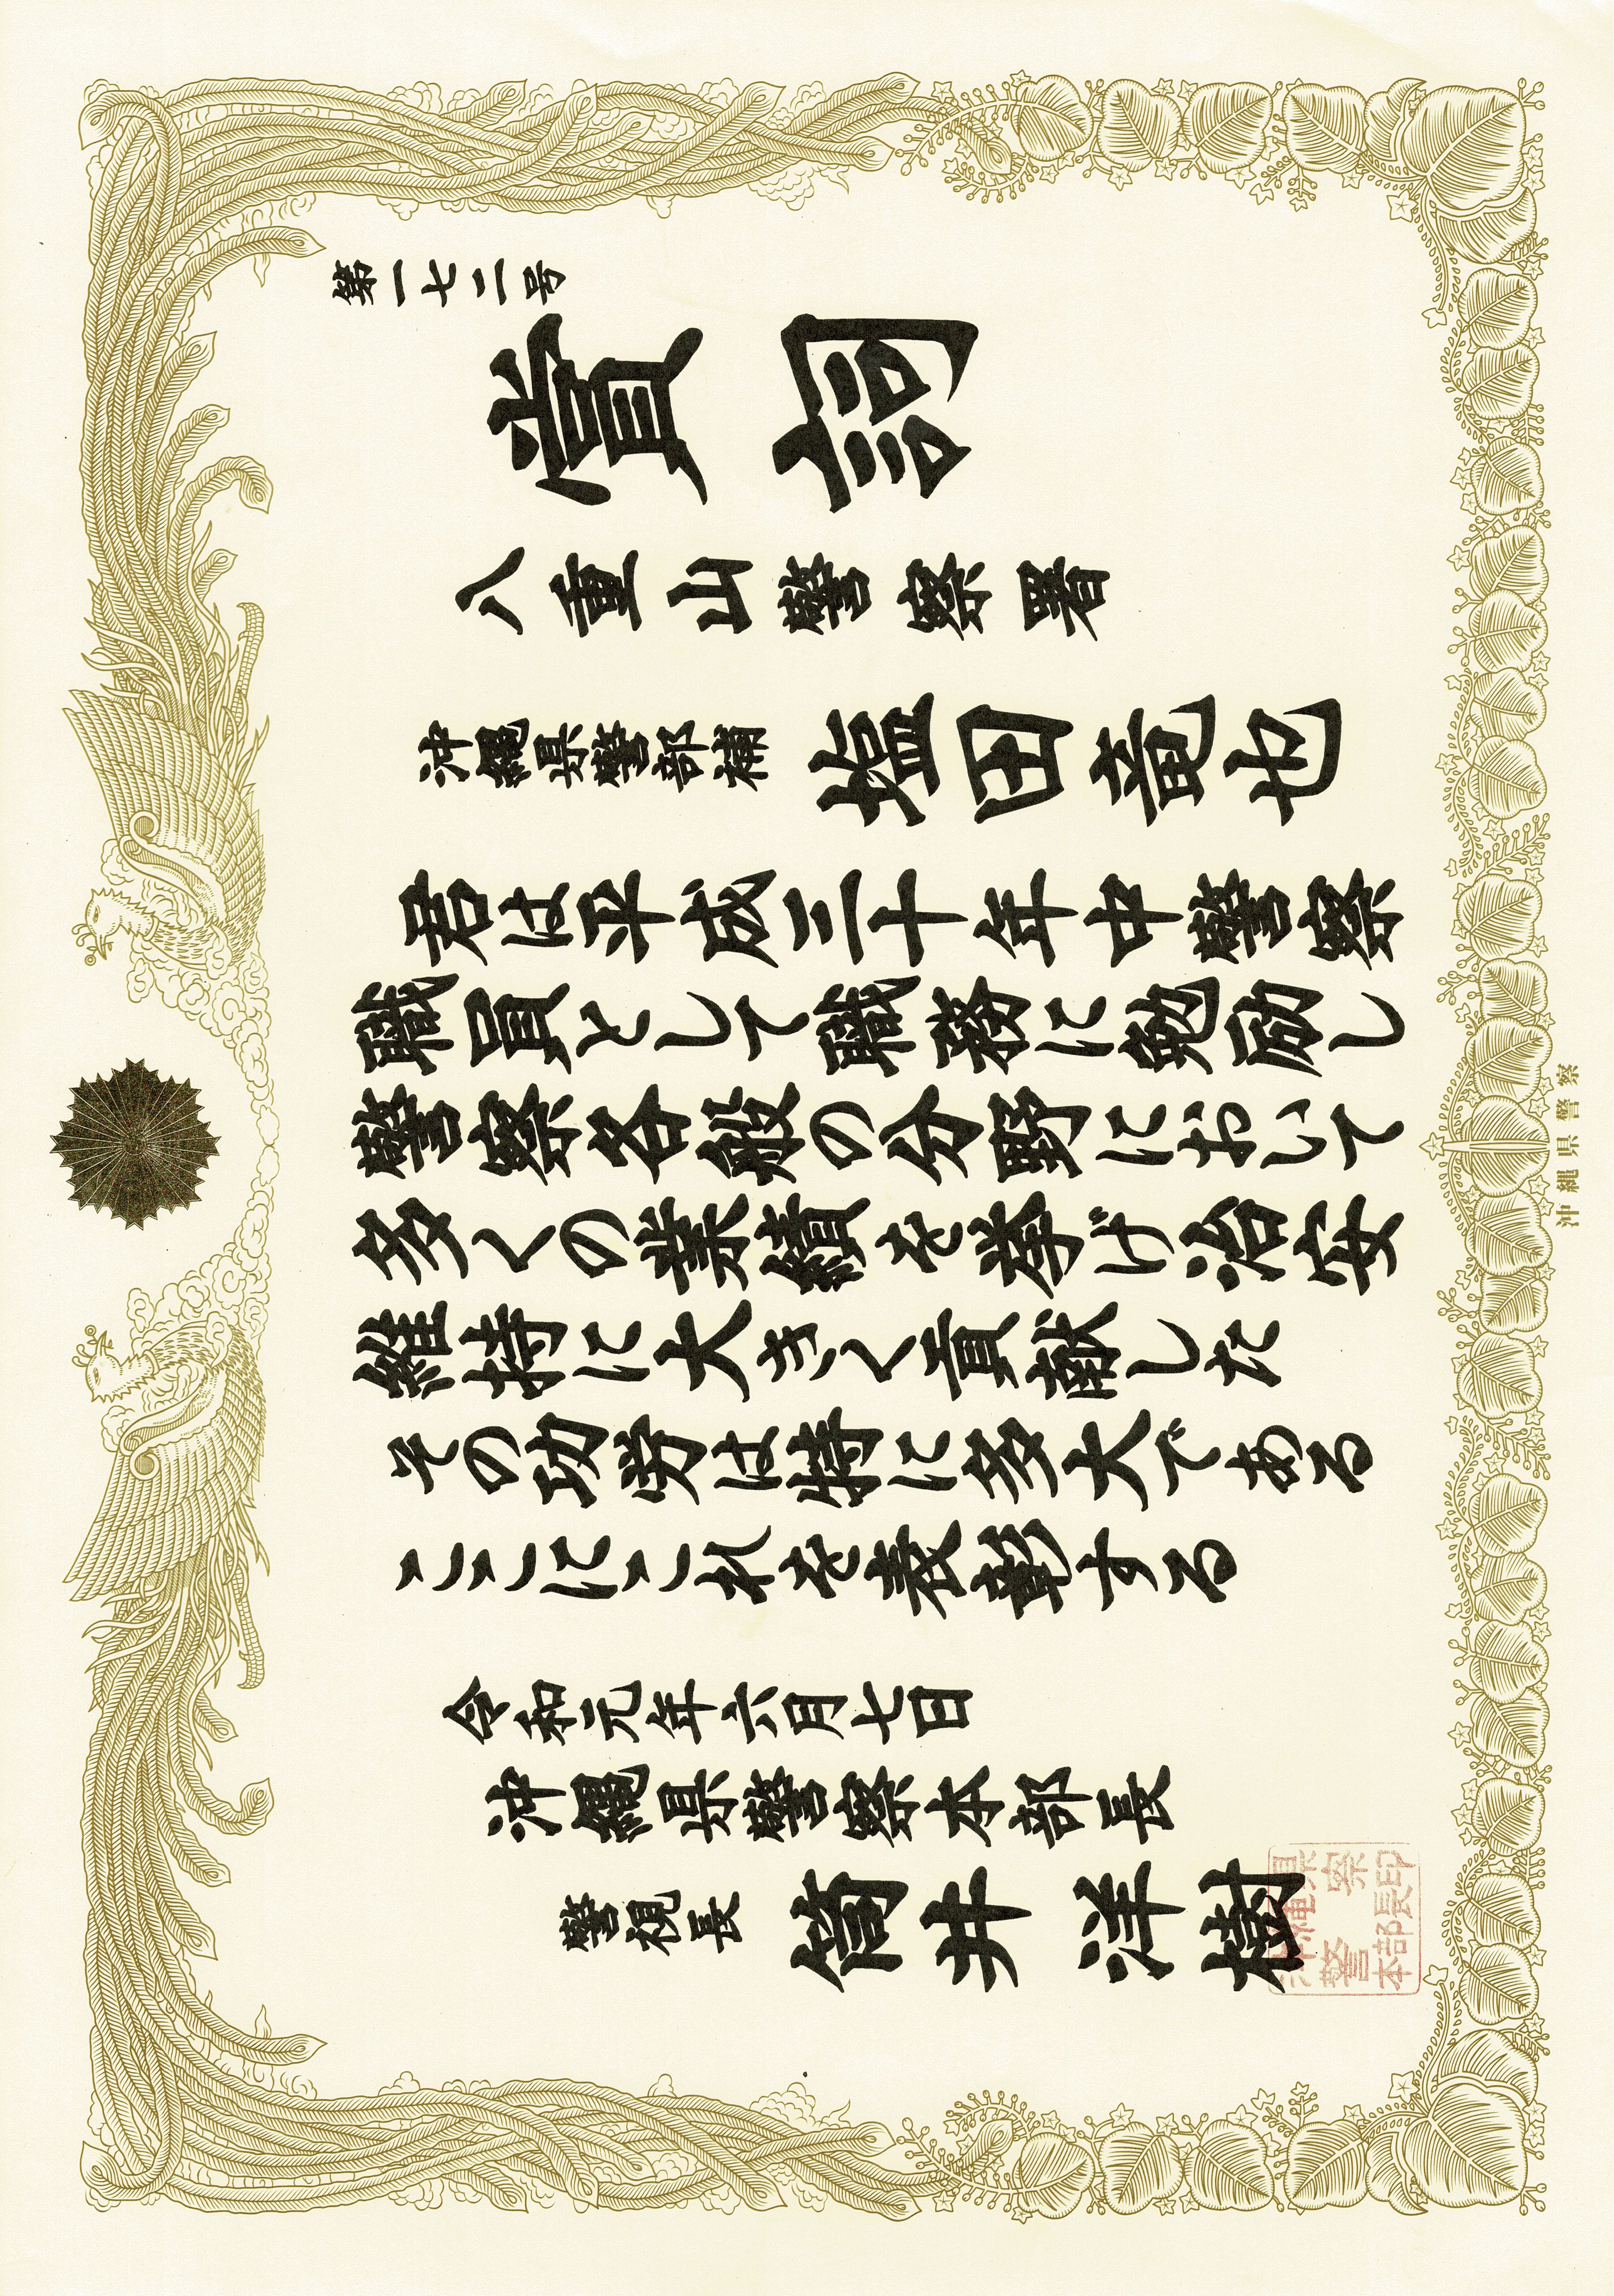 第一七二号
賞詞
八重山警察署
沖縄県警部補 塩田竜也
君は平成三十年中警察
職員として職務に勉励し
警察各般の分野において
多くの業績を挙げ治安
維持に大きく貢献した
その功労は特に多大である
ここにこれを表彰する
令和元年六月七日
沖縄県警察本部長
警視長 筒井洋樹
沖縄県
警察
本部長印
沖縄県警察